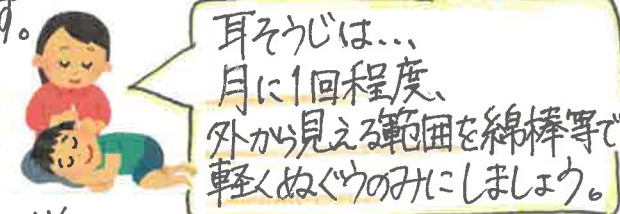 す。
耳そうじは…、
月に1回程度、
外から見える範囲を綿棒等で
軽くぬぐうのみにしましょう。